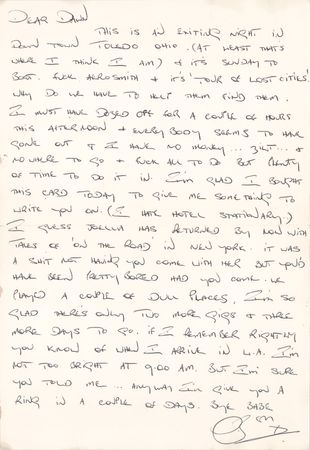 DEAR DAWN
THIS IS AN EXITING NIGHT IN
DOWN TOWN TOLEDO OHIO. (AT LEAST THATS
WHERE I THINK I AM) & IT'S SUNDAY TO
BOOT. FUCK AEROSMITH & IT'S 'TOUR OF LOST CITIES'
WHY DO WE HAVE TO HELP THEM FIND THEM.
I MUST HAVE DOSED OFF FOR A COUPLE OF HOURS
THIS AFTERNOON & EVERYBODY SEEMS TO HAVE
GONE OUT & I HAVE NO MONEY... &
NOWHERE TO GO & FUCK ALL TO DO BUT PLENTY
OF TIME TO DO IT IN. I'M GLAD I BOUGHT
THIS CARD TODAY TO GIVE ME SOMETHING TO
WRITE YOU ON. (I HATE HOTEL STATIONARY.)
I GUESS JOELLA HAS RETURNED BY NOW WITH
TALES OF 'ON THE ROAD IN NEW YORK. IT WAS
A SHIT NOT HAVING YOU COME WITH HER BUT YOU'D
HAVE BEEN PRETTY BORED HAD YOU COME.. WE
PLAYED A COUPLE OF DULL PLACES, I'M SO
GLAD THERE'S ONLY TWO MORE GIGS & THREE
MORE DAYS TO GO. IF I REMEMBER RIGHTLY
YOU KNOW OF WHEN I ARRIVE IN L.A. I'M
NOT TOO BRIGHT AT 9.00 AM. BUT I'M SURE
YOU TOLD ME... ANYWAY I'M GIVE YOU A
RING IN A COUPLE OF DAYS. BYE BABE